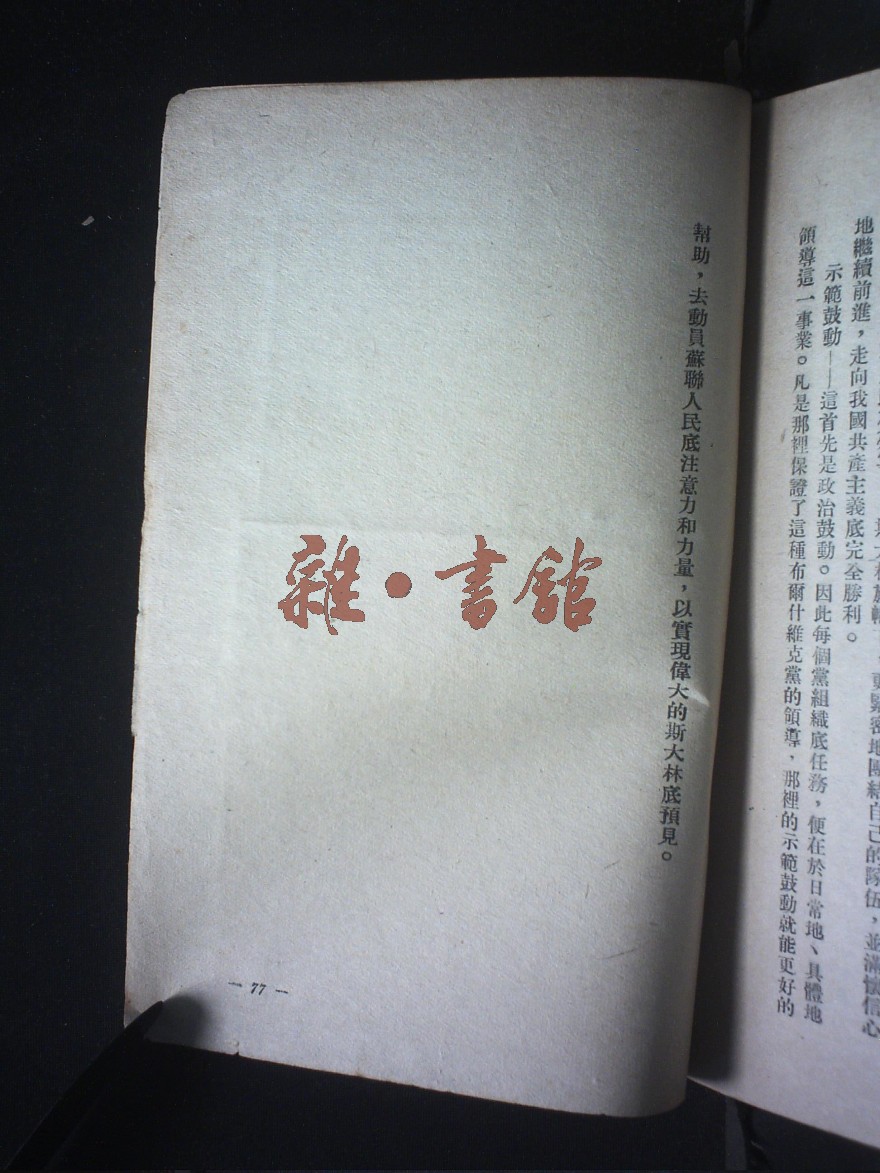 地繼續前進，走向我國共產主義底完全勝利。
示範鼓動——這首先是政治鼓動。因此每個黨組織底任務，便在於日常地、具體地
領導這一事業。凡是那裡保證了這種布爾什維克黨的領導，那裡的示範鼓動就能更好的
幫助，去動員蘇聯人民底注意力和力量，以實現偉大的斯大林底預見。
— 77 —
雜·書館